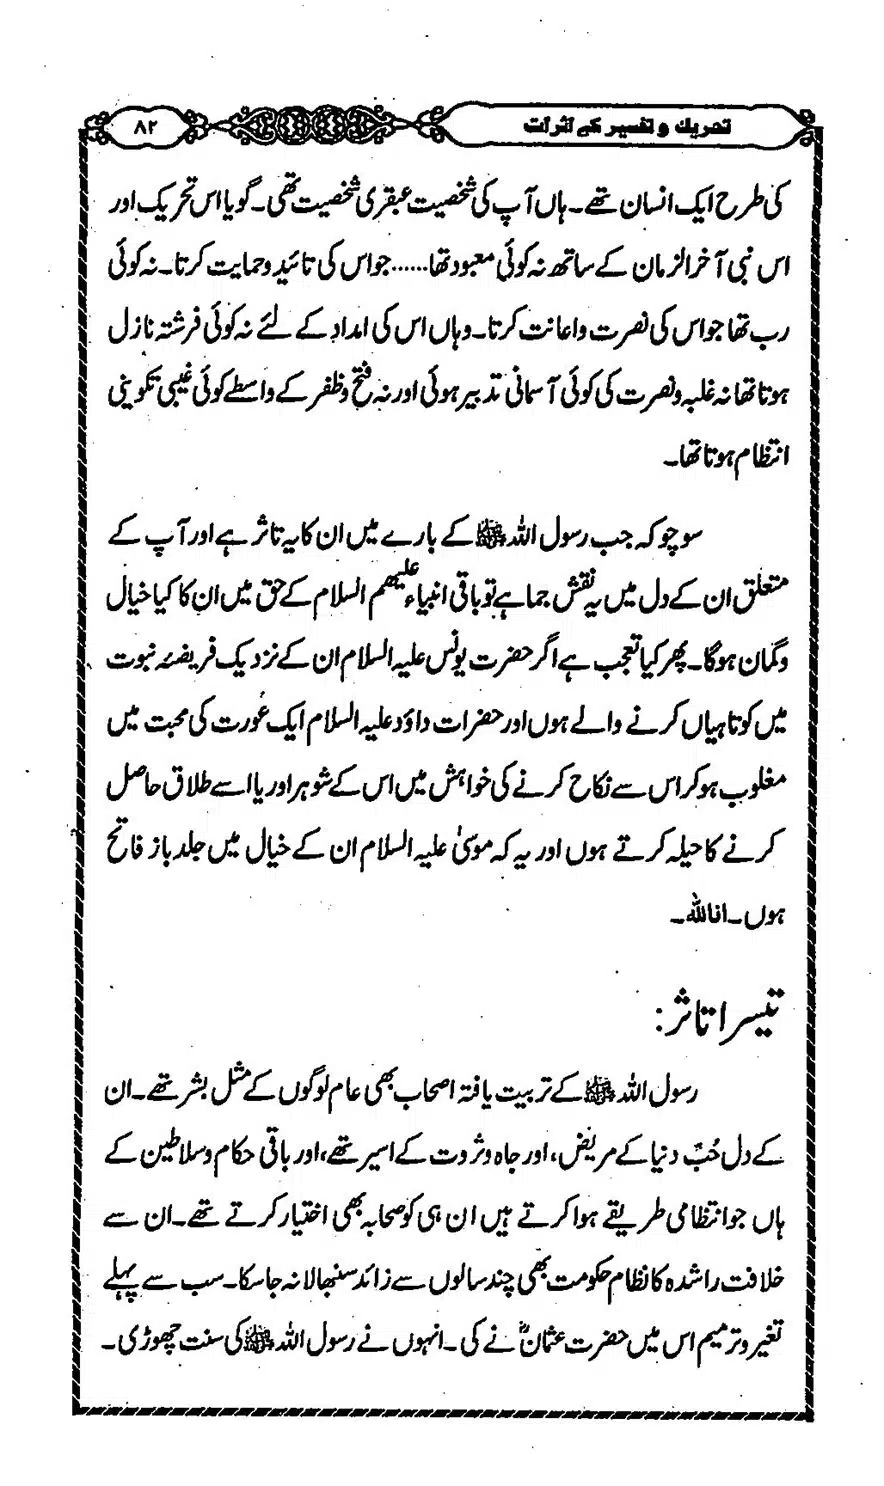 تحریک و تفسیر کے اثرات
۸۲
کی طرح ایک انسان تھے۔ ہاں آپ کی شخصیت عبقری شخصیت تھی۔ گویا اس تحریک اور
اس نبی آخر الزمان کے ساتھ نہ کوئی معبود تھا...... جو اس کی تائید و حمایت کرتا۔ نہ کوئی
رب تھا جو اس کی نصرت و اعانت کرتا۔ وہاں اس کی امداد کے لئے نہ کوئی فرشتہ نازل
ہوتا تھا نہ غلبہ و نصرت کی کوئی آسمانی تدبیر ہوئی اور نہ فتح و ظفر کے واسطے کوئی غیبی تکوینی
انتظام ہوتا تھا۔
سوچو کہ جب رسول اللہ ﷺ کے بارے میں ان کا یہ تاثر ہے اور آپ کے
متعلق ان کے دل میں یہ نقش جما ہے تو باقی انبیاء علیھم السلام کے حق میں ان کا کیا خیال
و گمان ہوگا۔ پھر کیا تعجب ہے اگر حضرت یونس علیہ السلام ان کے نزدیک فریضۂ نبوت
میں کوتاہیاں کرنے والے ہوں اور حضرات داؤد علیہ السلام ایک عورت کی محبت میں
مغلوب ہو کر اس سے نکاح کرنے کی خواہش میں اس کے شوہر اور یا اسے طلاق حاصل
کرنے کا حیلہ کرتے ہوں اور یہ کہ موسیٰ علیہ السلام ان کے خیال میں جلد باز فاتح
ہوں۔ انا للہ۔
تیسرا تاثر:
رسول اللہ ﷺ کے تربیت یافتہ اصحاب بھی عام لوگوں کے مثل بشر تھے۔ ان
کے دل حُبّ دنیا کے مریض، اور جاہ و ثروت کے اسیر تھے، اور باقی حکام و سلاطین کے
ہاں جو انتظامی طریقے ہوا کرتے ہیں ان ہی کو صحابہ بھی اختیار کرتے تھے۔ ان سے
خلافت راشدہ کا نظام حکومت بھی چند سالوں سے زائد سنبھالا نہ جا سکا۔ سب سے پہلے
تغیر و ترمیم اس میں حضرت عثمانؓ نے کی۔ انہوں نے رسول اللہ ﷺ کی سنت چھوڑی۔